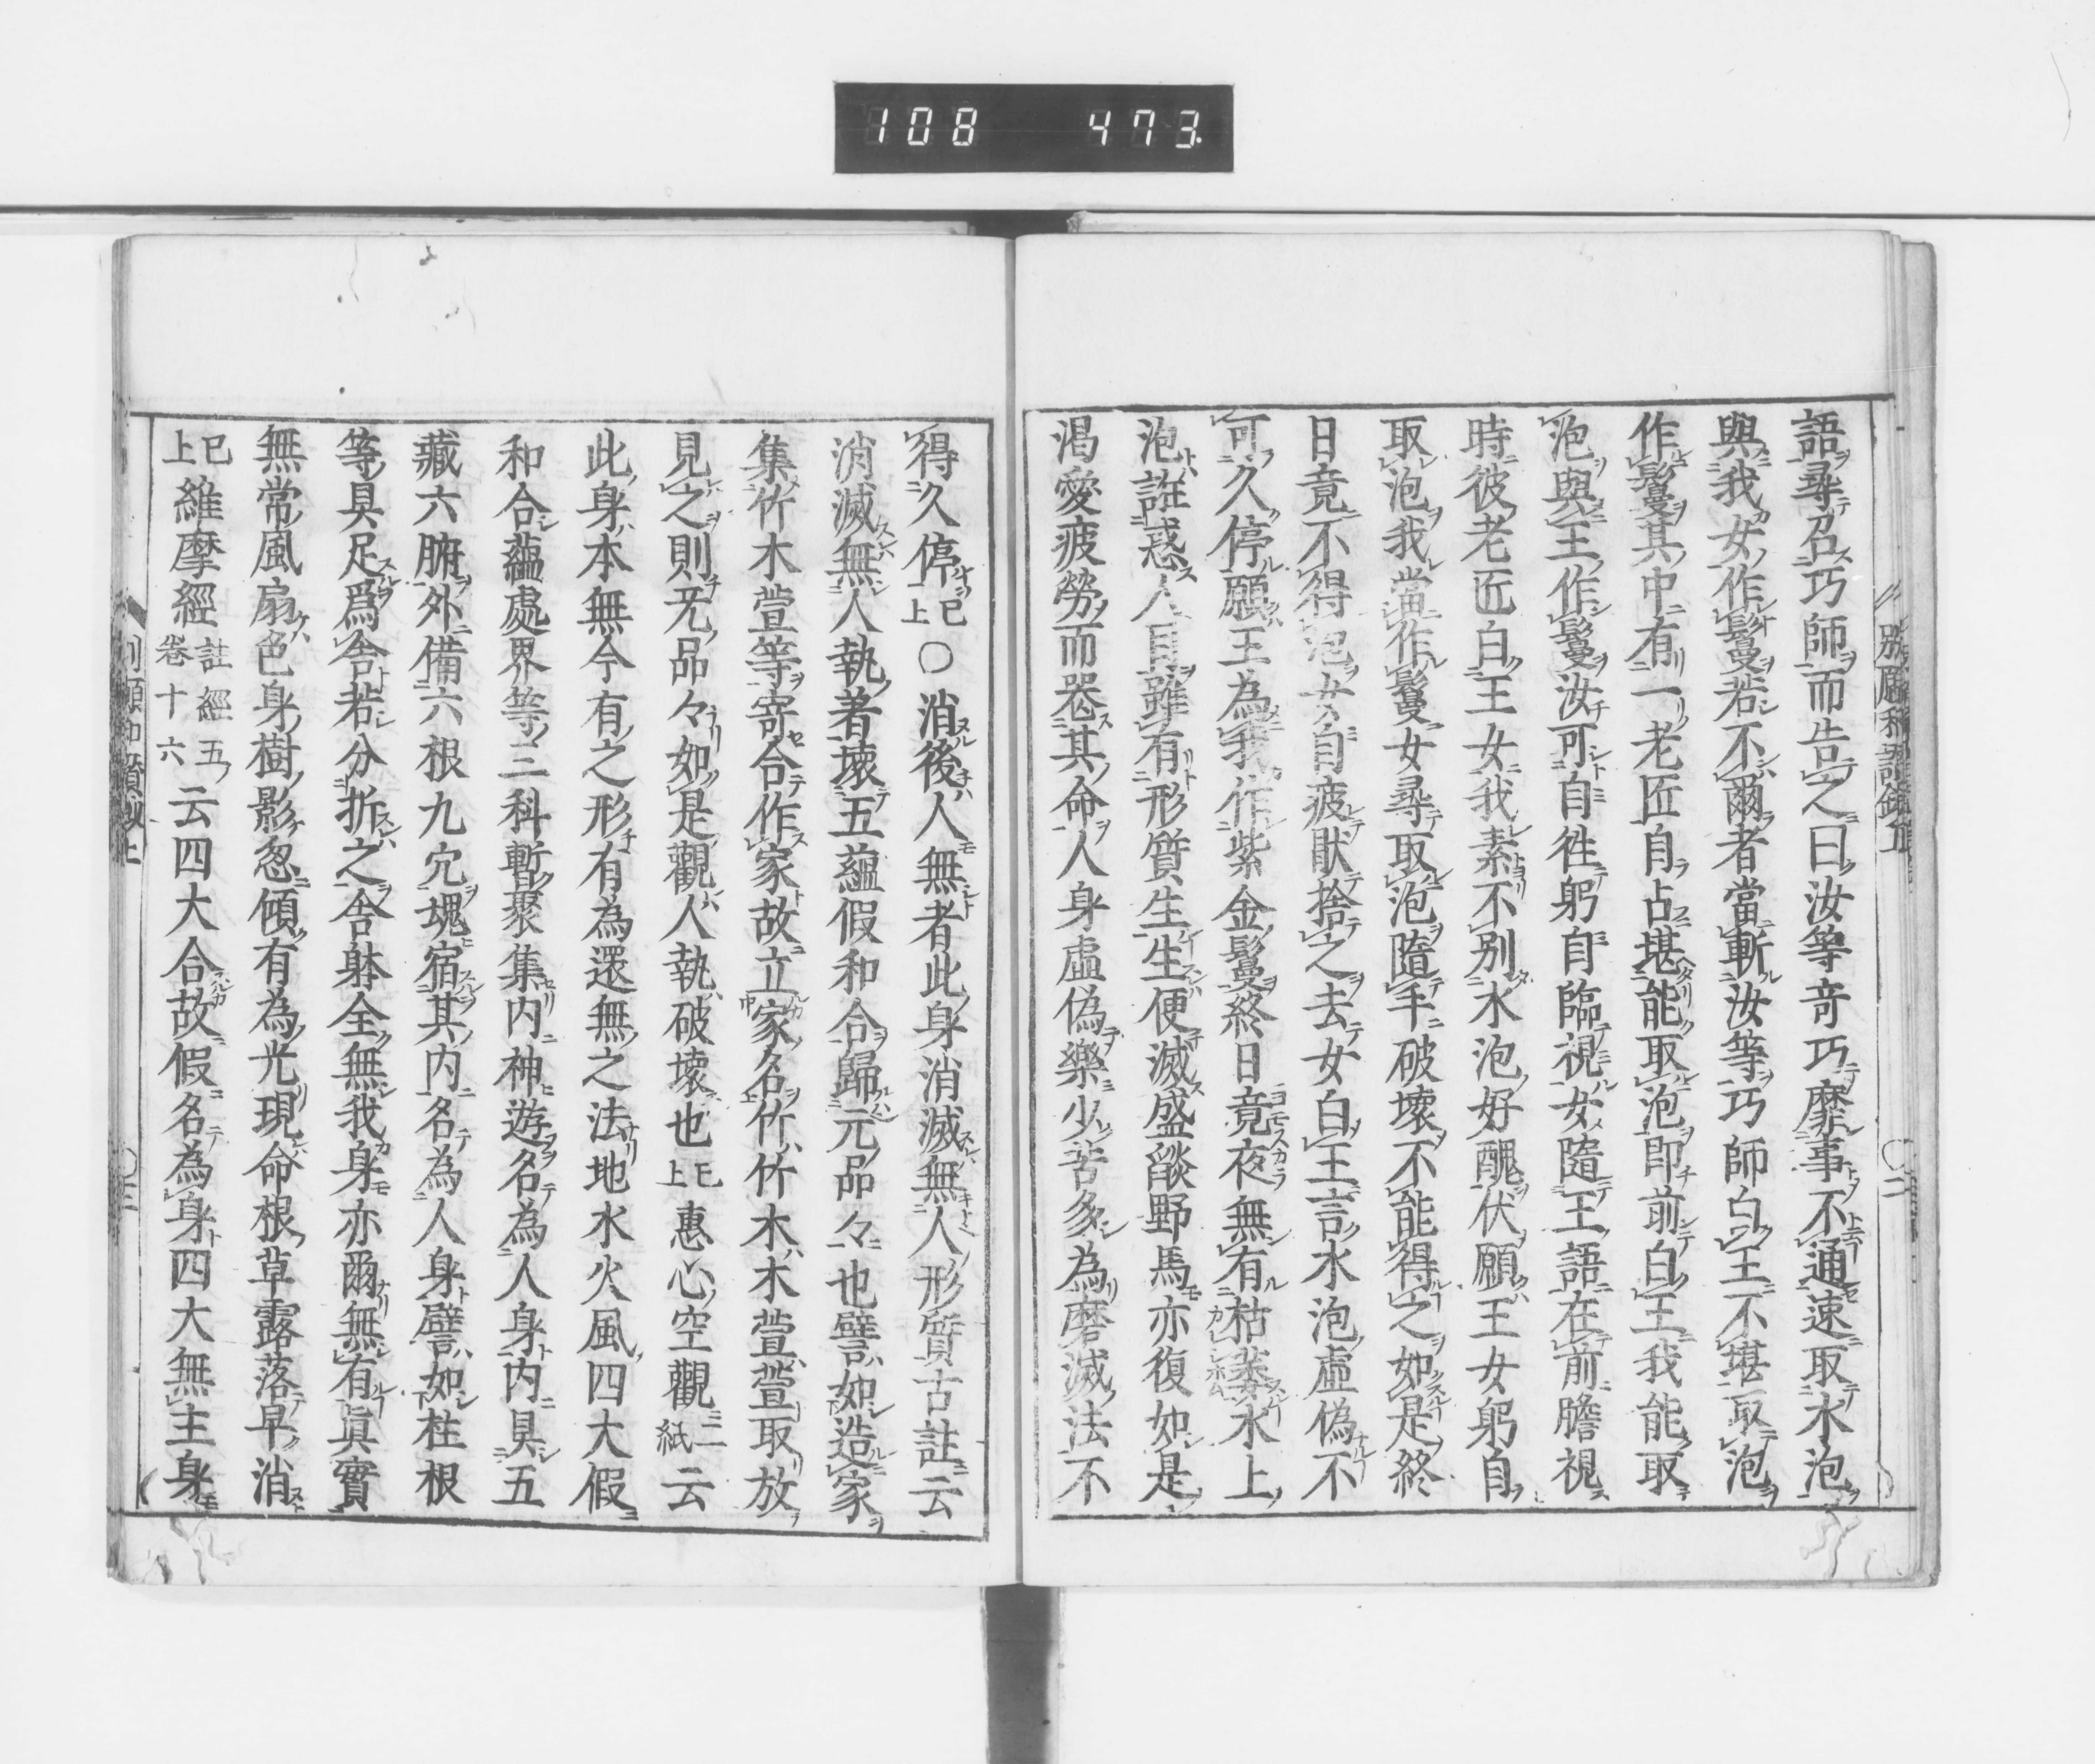 108 473
語尋召巧師而告之曰汝等竒巧靡事不通速取水泡
與我女作鬘若不爾者當斬汝等巧師白王不堪取泡
作鬘其中有一老匠自占堪能取泡即前白王我能取
泡與王作鬘汝可自徃躬自臨視女隨王語在前瞻視
時彼老匠白王女我素不別水泡好醜伏願王女躬自
取泡我當作鬘女尋取泡隨手破壞不能得之如是終
日竟不得泡女自疲猒捨之去女白王言水泡虛偽不
可久停願王為我作紫金鬘終日竟夜無有枯萎水上
泡誑惑人目雖有形質生生便滅盛𦦨野馬亦復如是
渇愛疲勞而喪其命人身虛偽樂少苦多為磨滅法不
得久停已上〇消後人無者此身消滅無人形質古註云
消滅無人執着壞五蘊假和合歸元品々也譬如造家
集竹木萱等寄合作家故立家名竹竹木木萱萱取放
見之則旡品々如是觀人執破壞也已上惠心空觀三紙云
此身本無今有之形有為還無之法地水火風四大假
和合蘊處界等三科暫聚集内神遊名為人身内具五
藏六腑外備六根九穴塊宿其内名為人身譬如柱根
等具足爲舎若分折之舎躰全無我身亦爾無有眞實
無常風扇色身樹影忽傾有為光現命根草露落早消
已上維摩經註經五卷十六云四大合故假名為身四大無主身